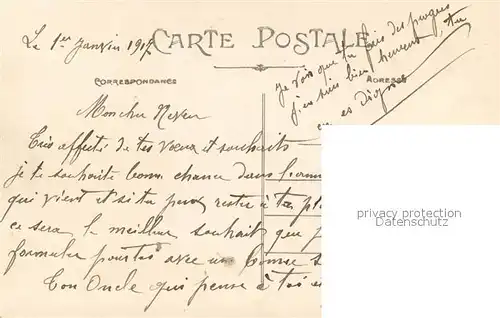 Le 1er Janvier 1917
CARTE POSTALE
Je vois que tu fais des progrès
j'en suis bien heureux, tu
en es digne
CORRESPONDANCE
ADRESSE
Mon cher Neveu
Très affecté de tes voeux et souhaits
je te souhaite bonne chance dans l'année
qui vient et si tu peux reste à ta pl
ce sera le meilleur souhait que j
formuler pour toi avec une bonne s
Ton Oncle qui pense à toi
privacy protection
Datenschutz